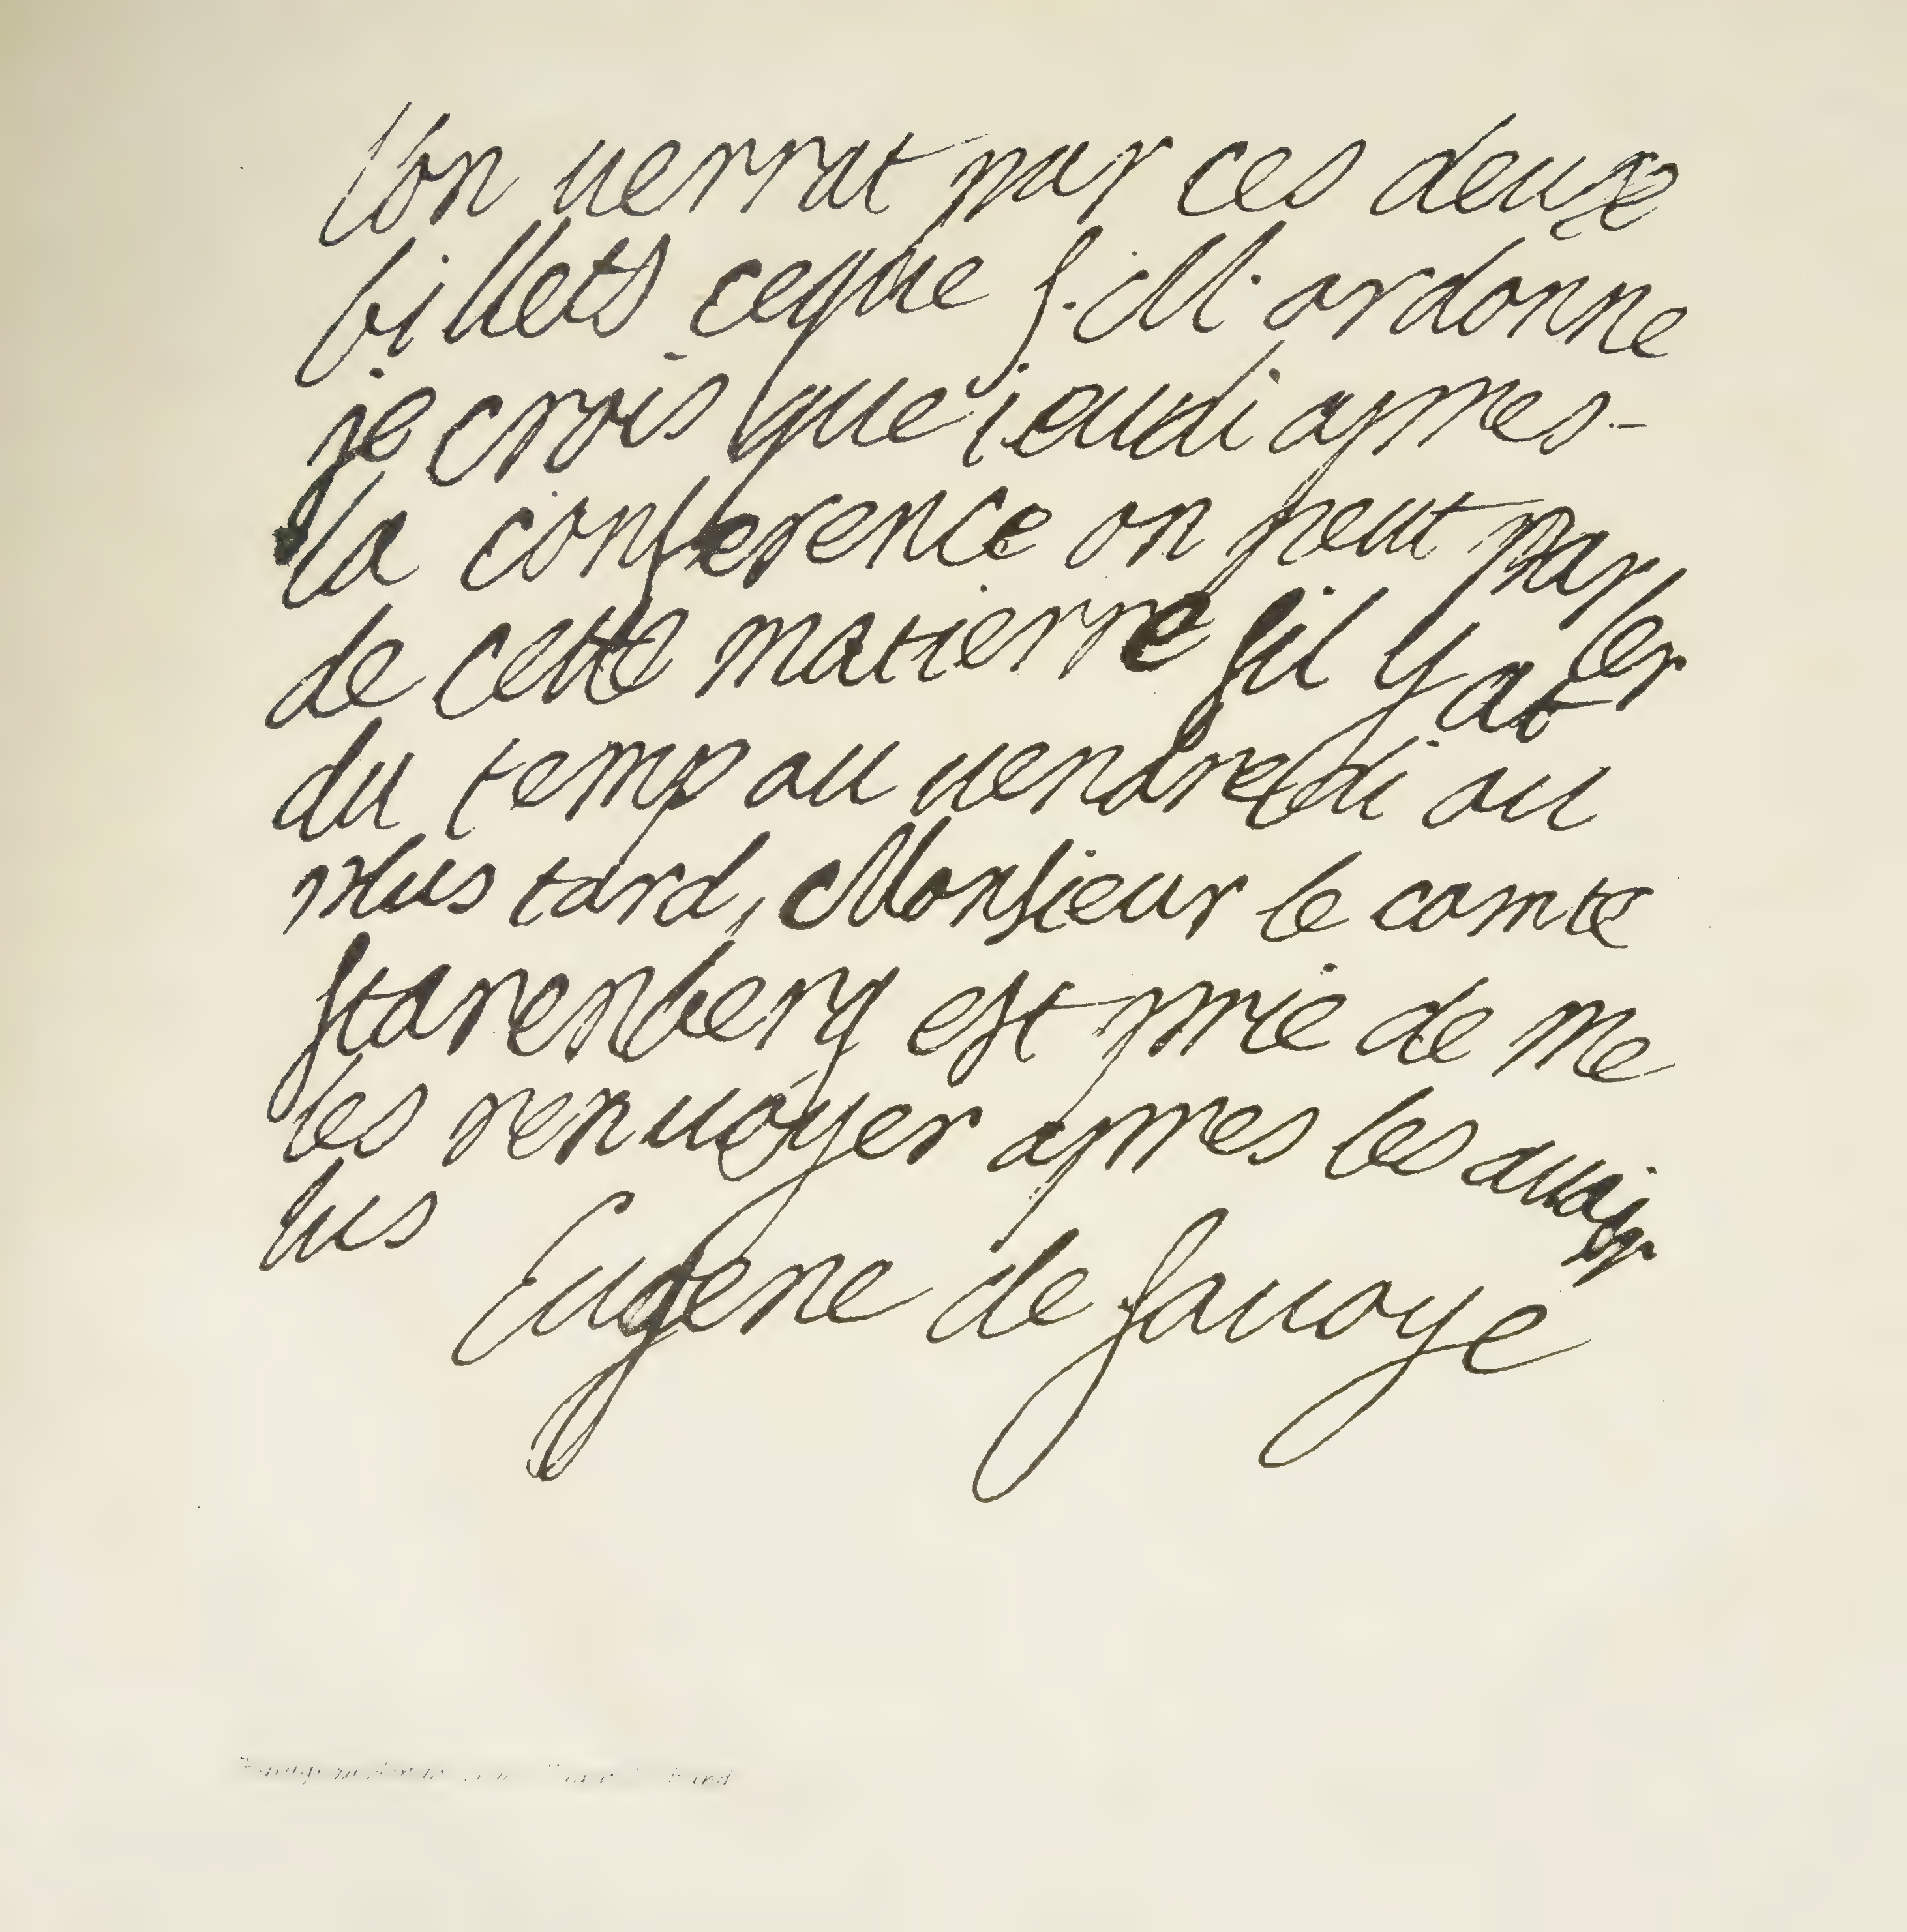 l'on uerrat par ces deuxe
billets ceque S. M. ordonne
je crois que jeudi apres-
la conference on peut parler
de cette matierre sil y at
du temp ou uendredi ou
plus tard, Monsieur le comte
starenberg est prie de me
les renuoyer apres les auoir
lus
Eugene de Sauoye